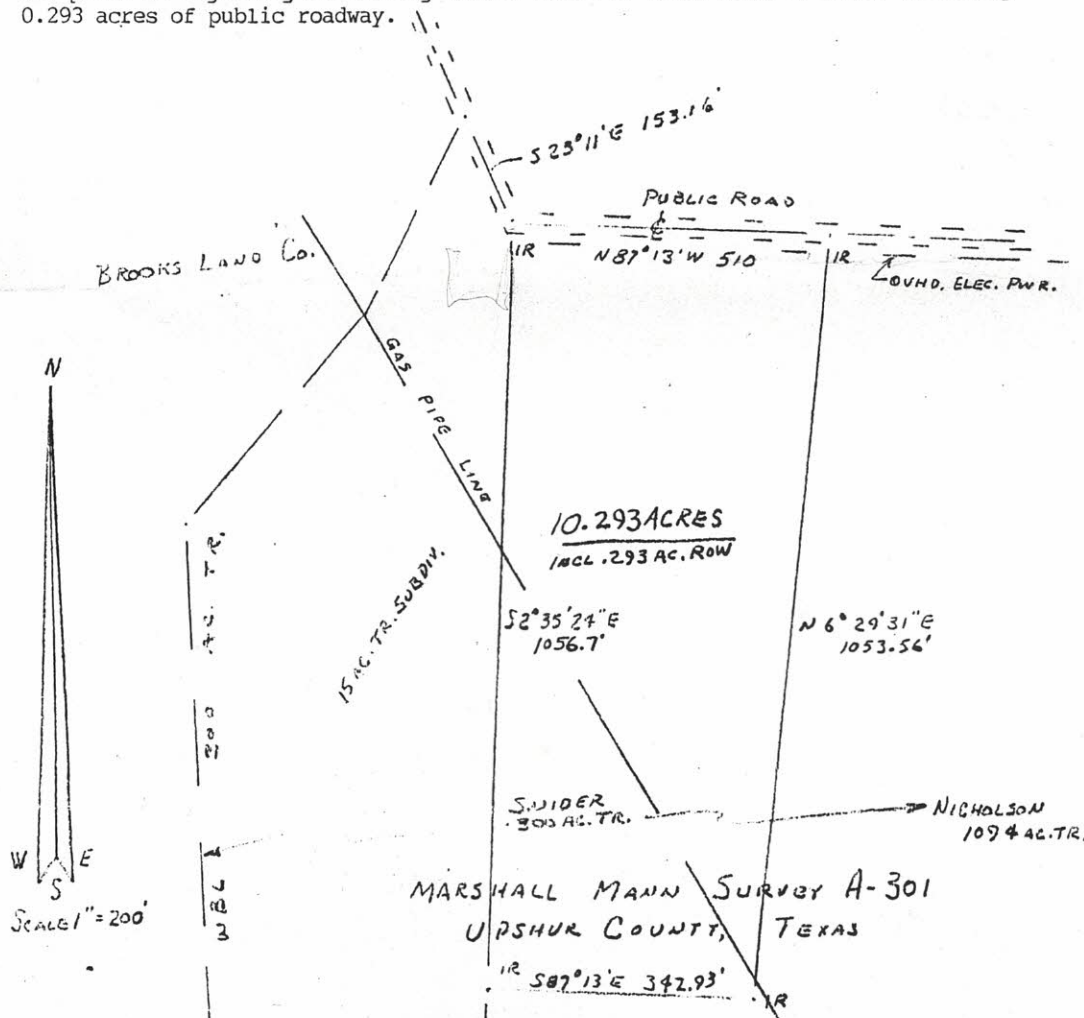 0.293 acres of public roadway.
S 23°11'E 153.16'
PUBLIC ROAD
BROOKS LAND Co.
IR
N 87°13'W 510
IR
OVHD. ELEC. PWR.
N
GAS PIPE LINE
10.293 ACRES
INCL .293 AC. ROW
200 AC. TR.
15 AC. TR. SUBDIV.
S2°35'24"E
1056.7'
N 6°29'31"E
1053.56'
SNIDER
300 AC. TR.
NICHOLSON
1094 AC. TR.
W E
S
SCALE 1"=200'
WBL
MARSHALL MANN SURVEY A-301
UPSHUR COUNTY, TEXAS
IR S87°13'E 342.93'
IR